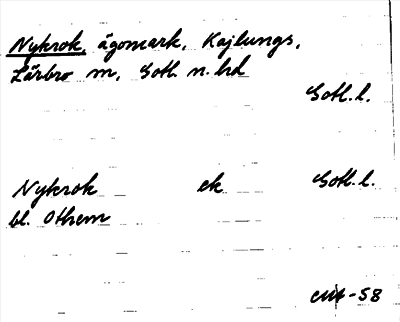 Nykrok, ägomark, Kajlungs,
Lärbro sn, Gotl. n. hd
Gotl. l.
Nykrok ek Gotl. l.
bl. Othem
-58